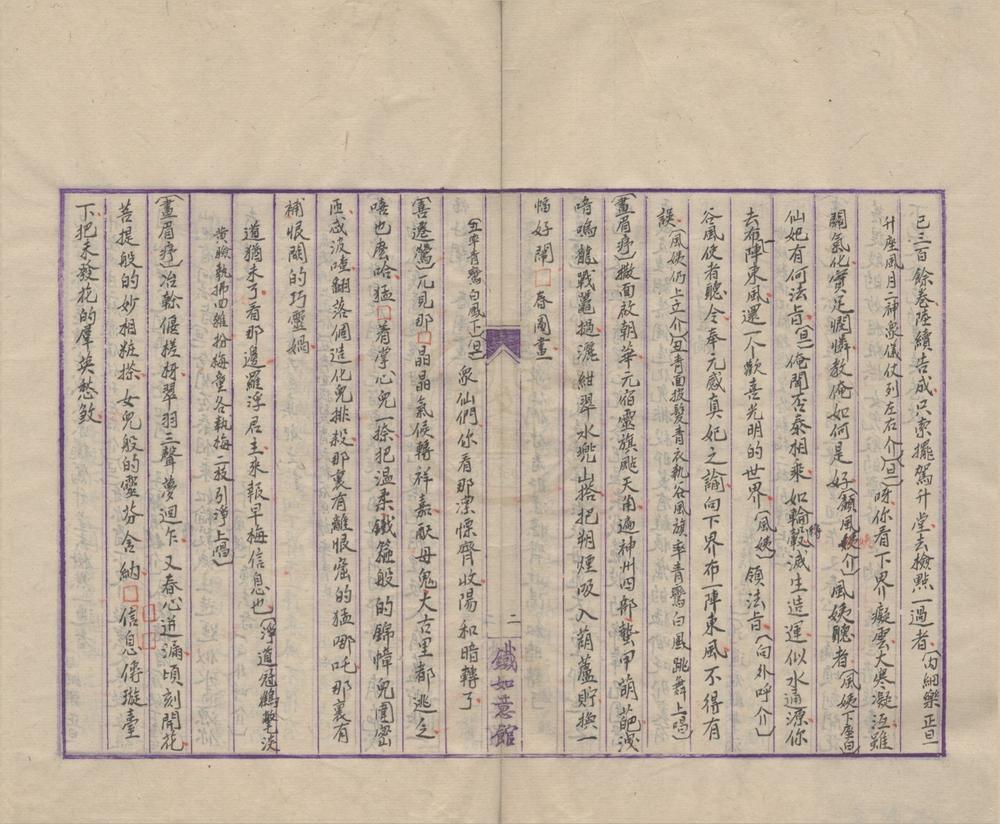 已三百餘卷陸續告成只索擺駕升堂去檢點一過者(內細樂正旦
升座風月二神衆儀仗列左右介)(旦)呀你看下界癡雲大寒凝沍雖
關氣化實足憫憐教俺如何是好(顧風姨介)風姨聽者(風姨下座白)
仙妃有何法旨(旦)俺聞否泰相乘如輪轂滅生造運似水通源你
去布陣東風還一个歡喜光明的世界(風姨)領法旨(向外呼介)
谷風使者聽令奉元感真妃之諭向下界布一陣東風不得有
誤(風姨仍上立介)(丑青面披髮青衣執谷風旗率青鸞白風跳舞上唱)
(畫眉序)撒面放朝華元伯靈旗颭天角遍神州四郊蟄甲萌葩洩
喑嗚龍戰鼉撾灑紺翠水兜山搭把朔煙吸入葫蘆貯換一
幅好鬧□春圖畫
(丑率青鸞白風下)(旦)衆仙們你看那漂慄齊收陽和暗轉了
(喜遷鶯)兀見那□晶晶氣候轉祥嘉酘母鬼大古里都逃乏
唔也麽哈猛□着掌心兒一捺把溫柔鐵箍般的錦幃兒圍密
匝忒波喳翻落個造化兒排殺那裏有離恨窟的猛哪吒那裏有
補恨閣的巧靈媧
道猶未了看那邊羅浮居主來報早梅信息也(淨道冠鶴氅淡
黄臉執拂四雜扮梅童各執梅一枝引淨上唱)
(畫眉序)冶榦偃搓枒翠羽三聲夢迴乍又春心逬漏頃刻開花
菩提般的妙相粧搽女兒般的靈芬含納□信息倩璇臺
下把未發花的羣英愁煞
二
鐵如意館